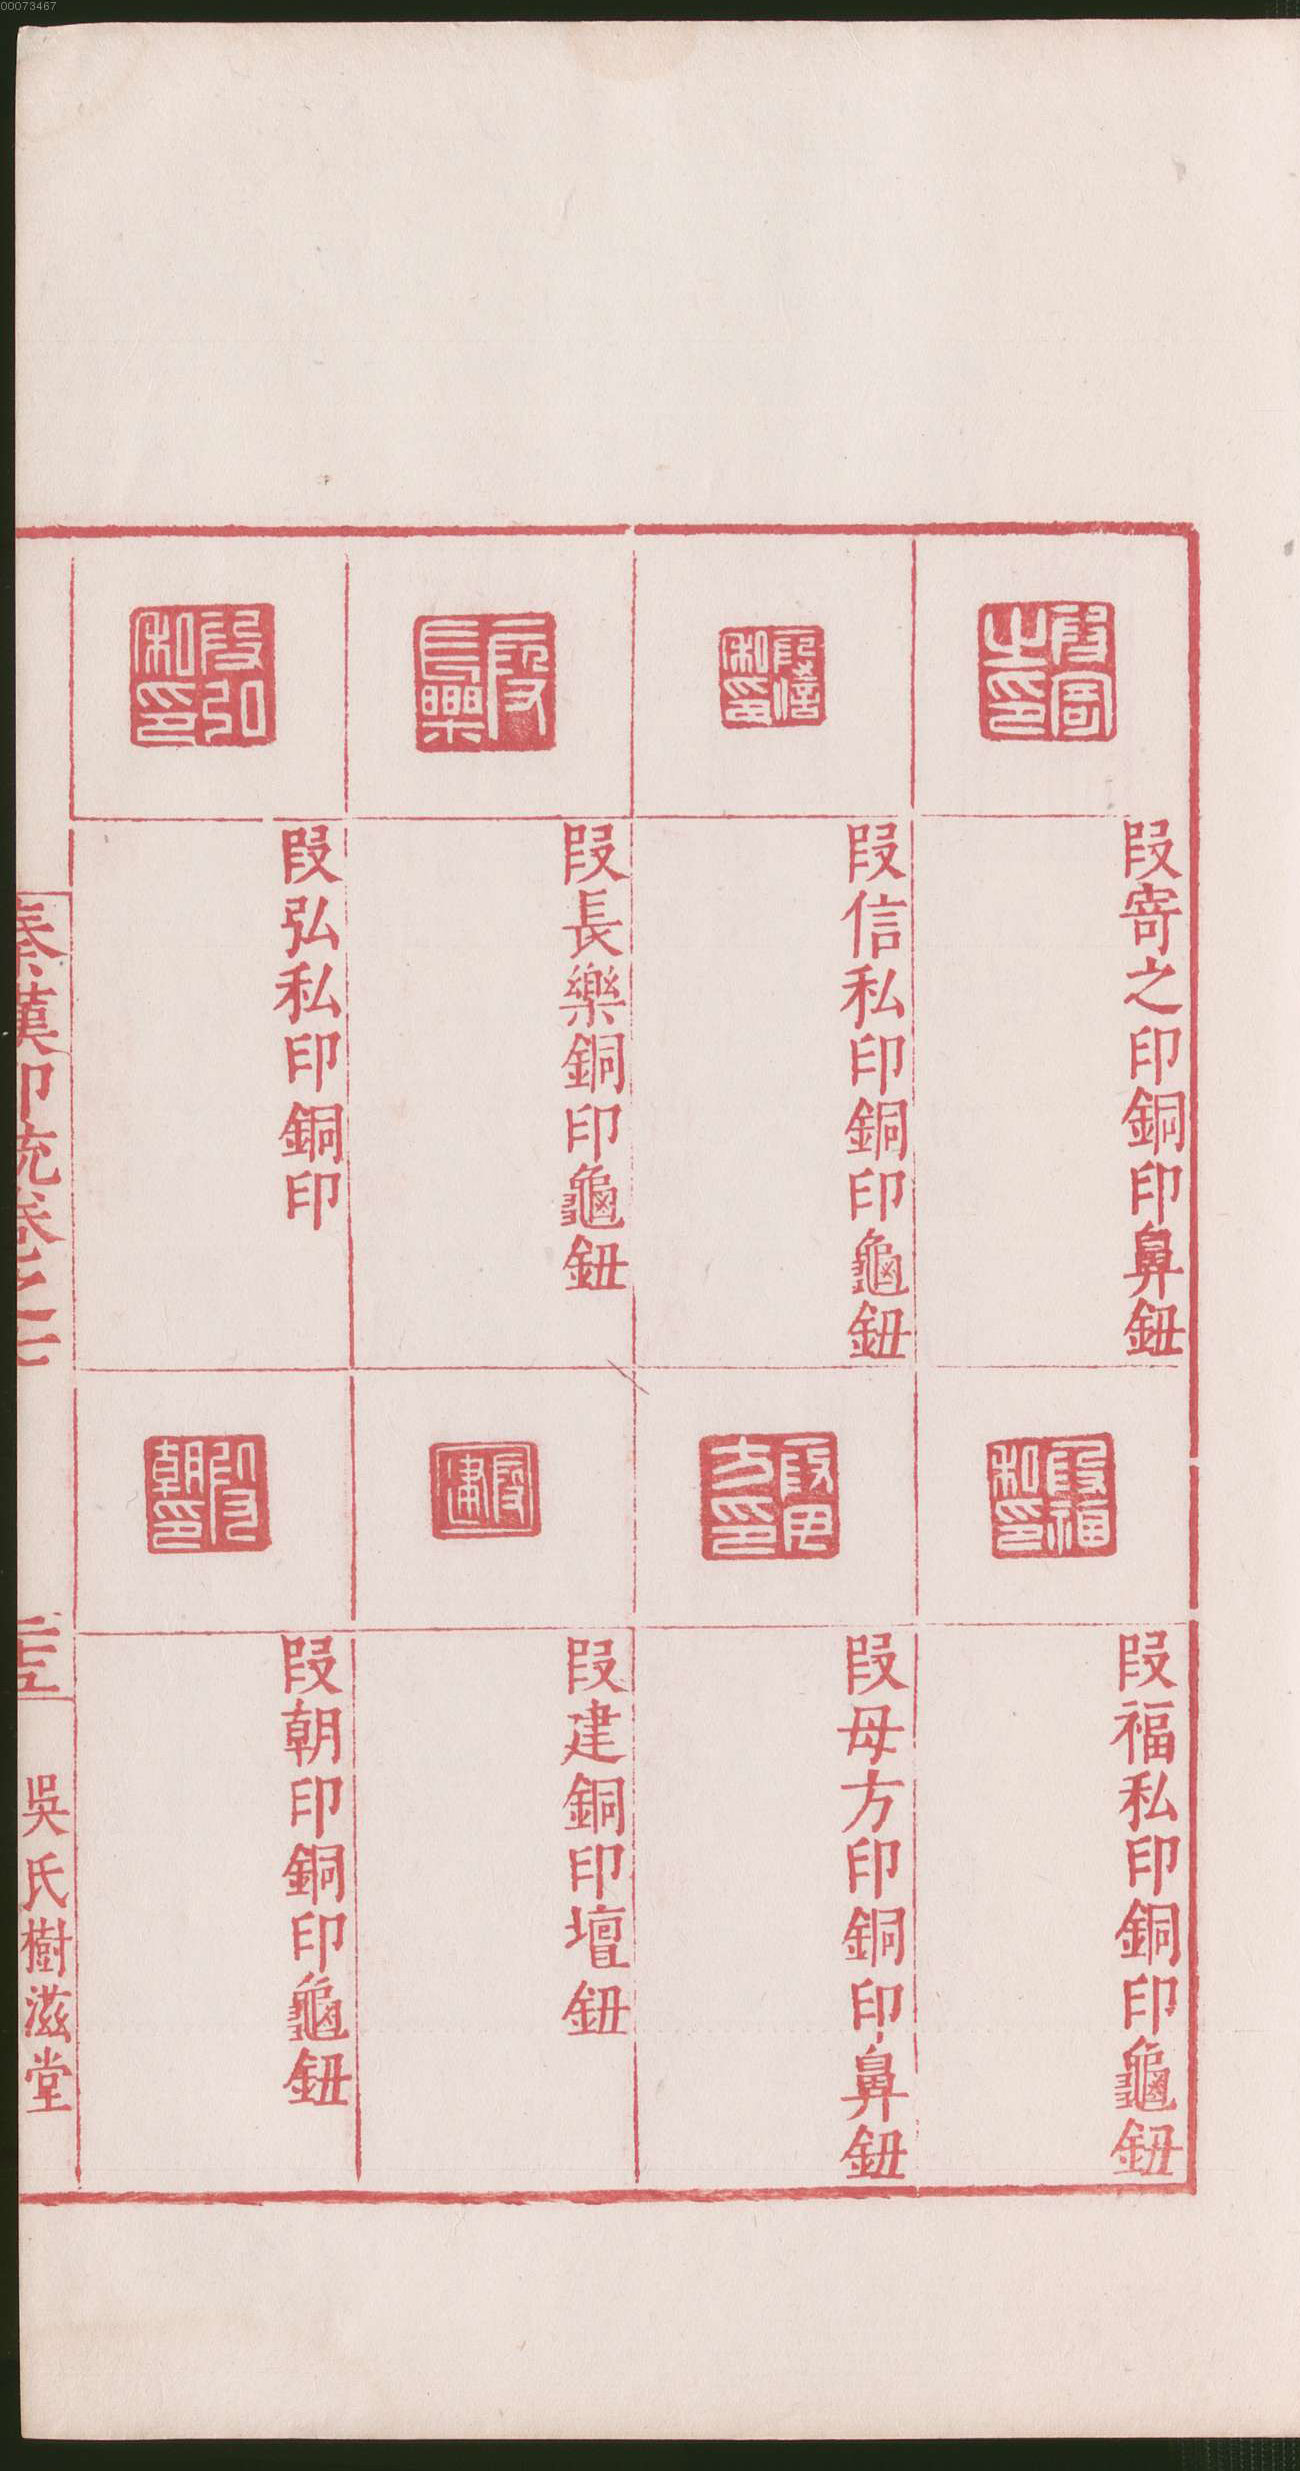 00073467
段寄之印銅印鼻鈕
段信私印銅印龜鈕
段長樂銅印龜鈕
段弘私印銅印
段福私印銅印龜鈕
段母方印銅印鼻鈕
段建銅印壇鈕
段朝印銅印龜鈕
秦漢印統卷之七
二十五
吳氏樹滋堂